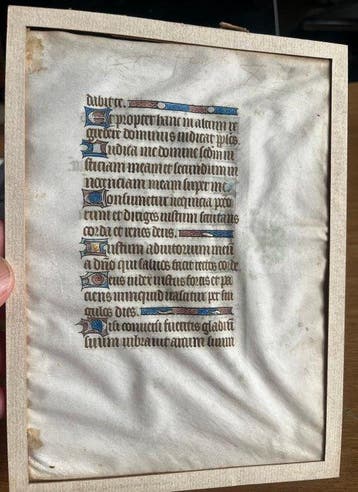 dabit te.
Et propter hanc in altum re
gredere dominus iudicat pplos.
Iudica me domine scdm iu
sticiam meam et secundum in
nocenciam meam super me.
Consumetur nequicia pcto
rum et diriges iustum scrutans
corda et renes deus.
Iustum adiutorium meū
a dno qui saluos facit rectos corde.
Deus iudex iustus fortis et pa
ciens nunquid irascitur per sin
gulos dies.
Nisi conuersi fueritis gladiū
suum vibrauit arcum suum